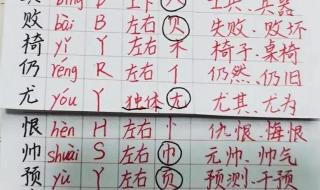 上下 兵器
败 bài B 左右 贝 失败、败坏
椅 yǐ Y 左右 木 椅子、桌椅
仍 réng R 左右 亻 仍然、仍旧
尤 yóu Y 独体 尢 尤其、尤为
恨 hèn H 左右 忄 仇恨、悔恨
帅 shuài S 左右 巾 元帅、帅气
预 yù Y 左右 页 预测、干预